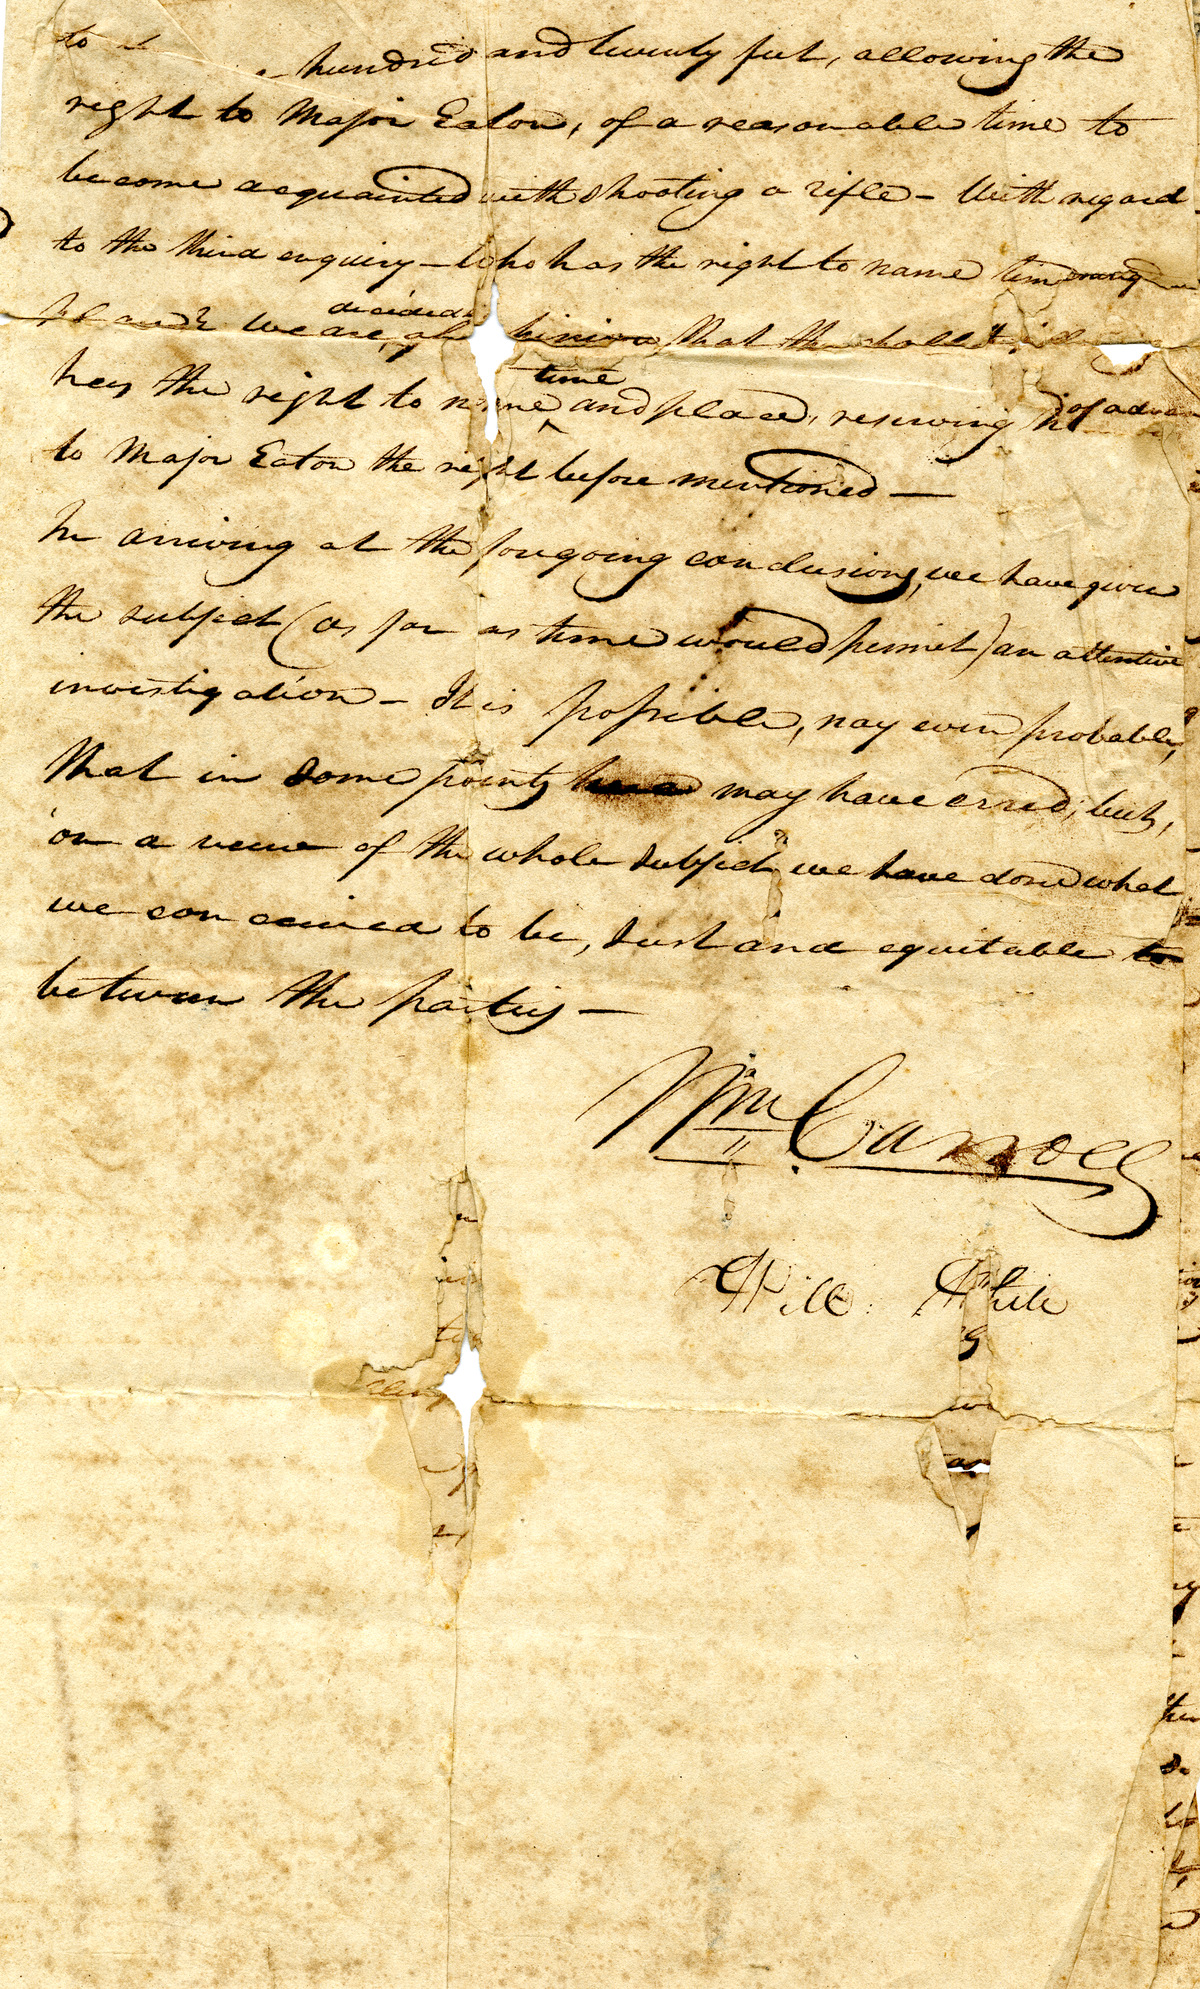 to a hundred and twenty feet, allowing the
right to Major Eaton, of a reasonable time to
become acquainted with shooting a rifle - With regard
to the third enquiry - who has the right to name time and
place? We are decidedly of opinion, that the challenged
has the right to name time and place, reserving
to Major Eaton the right before mentioned -
In arriving at the foregoing conclusions, we have given
the subject (as far as time would permit) an attentive
investigation - It is possible, nay even probable,
that in some points may have erred; but,
on a view of the whole subject we have done what
we conceived to be, Just and equitable to
between the parties -
Wm Carroll
Will. White